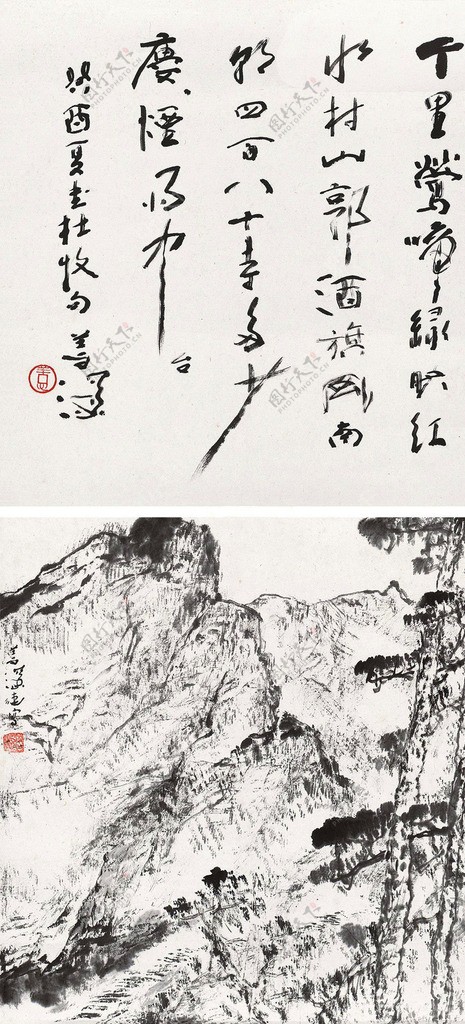 千里鶯啼綠映紅
水村山郭酒旗風南
朝四百八十寺多少
煙雨中
台
癸酉夏書杜牧句
图行天下
PHOTOPHOTO.CN